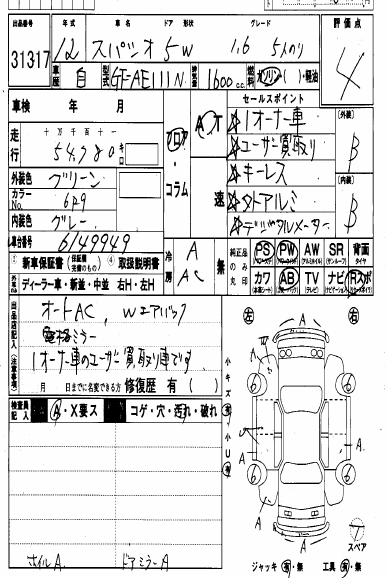 出品番号 年式 車名 ドア 形状 グレード 評価点
31317 12 スパシオ 5W 1.6 5人のり 4
車歴 自 型式 GF-AE111N 排気量 1600 c.c. 燃料 ガソリン ( )・軽油
車検 年 月 セールスポイント
走行 十万千百十一 54780 キロ フロア・コラム AT 速
☆1オーナー車 [外装] B
☆ユーザー買取り
☆キーレス
☆タトアルミ [内装] B
☆デジタルメーター
外装色 グリーン
カラーNo. 6P9
内装色 グレー
車台番号 6149949 冷房 A AC 無
純正品のみ丸印 PS PW AW SR 背面タイヤ
カワ AB TV ナビ Rスポ
新車保証書 (保証継続のもの) 取扱説明書
ディーラー車・新並・中並 右H・左H
出品店記入 (注意事項)
オートAC, Wエアバック
電格ミラー
1オーナー車のユーザー買取り車です。
月 日までに名変できる方 修復歴 有 ( )
検査員記入 A・X要ス コゲ・穴・汚れ・破れ
小キズ 有・小U 有
左 右
A
6 6
6 6
A A A
ホイルA ドアミラーA
スペア
ジャッキ 有・無 工具 有・無